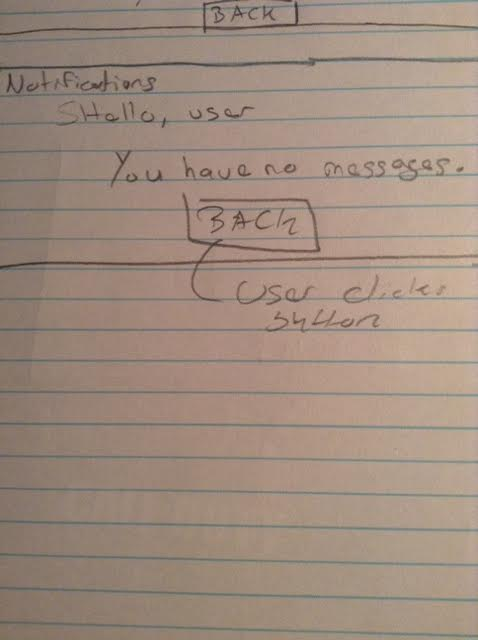 BACK
Notifications
SHello, user
You have no messages.
BACK
User clicks
button